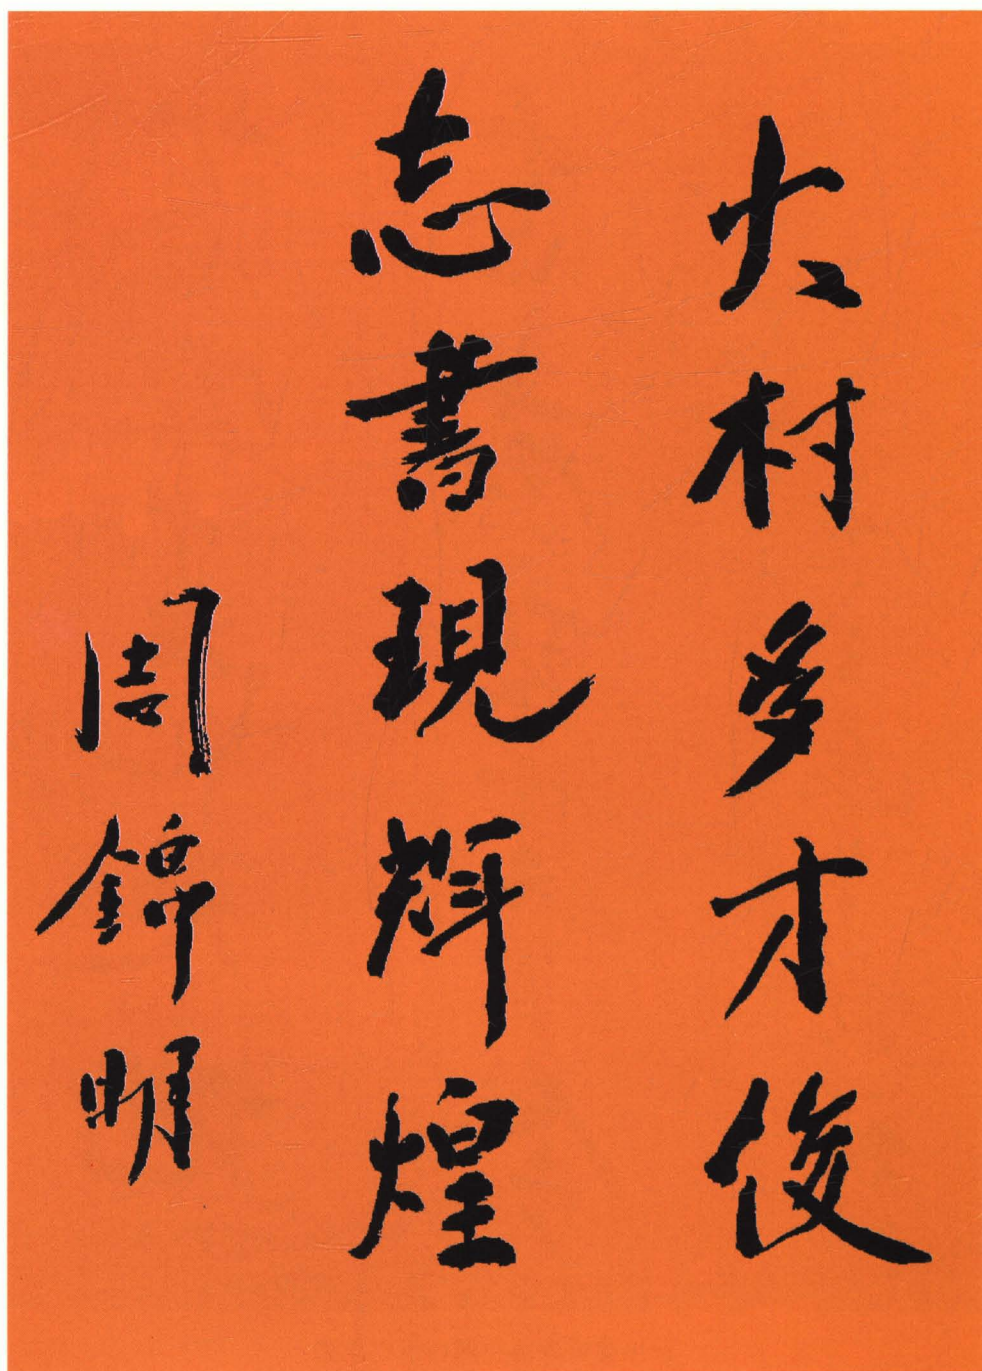 大村多才俊
志書現輝煌
周錦明